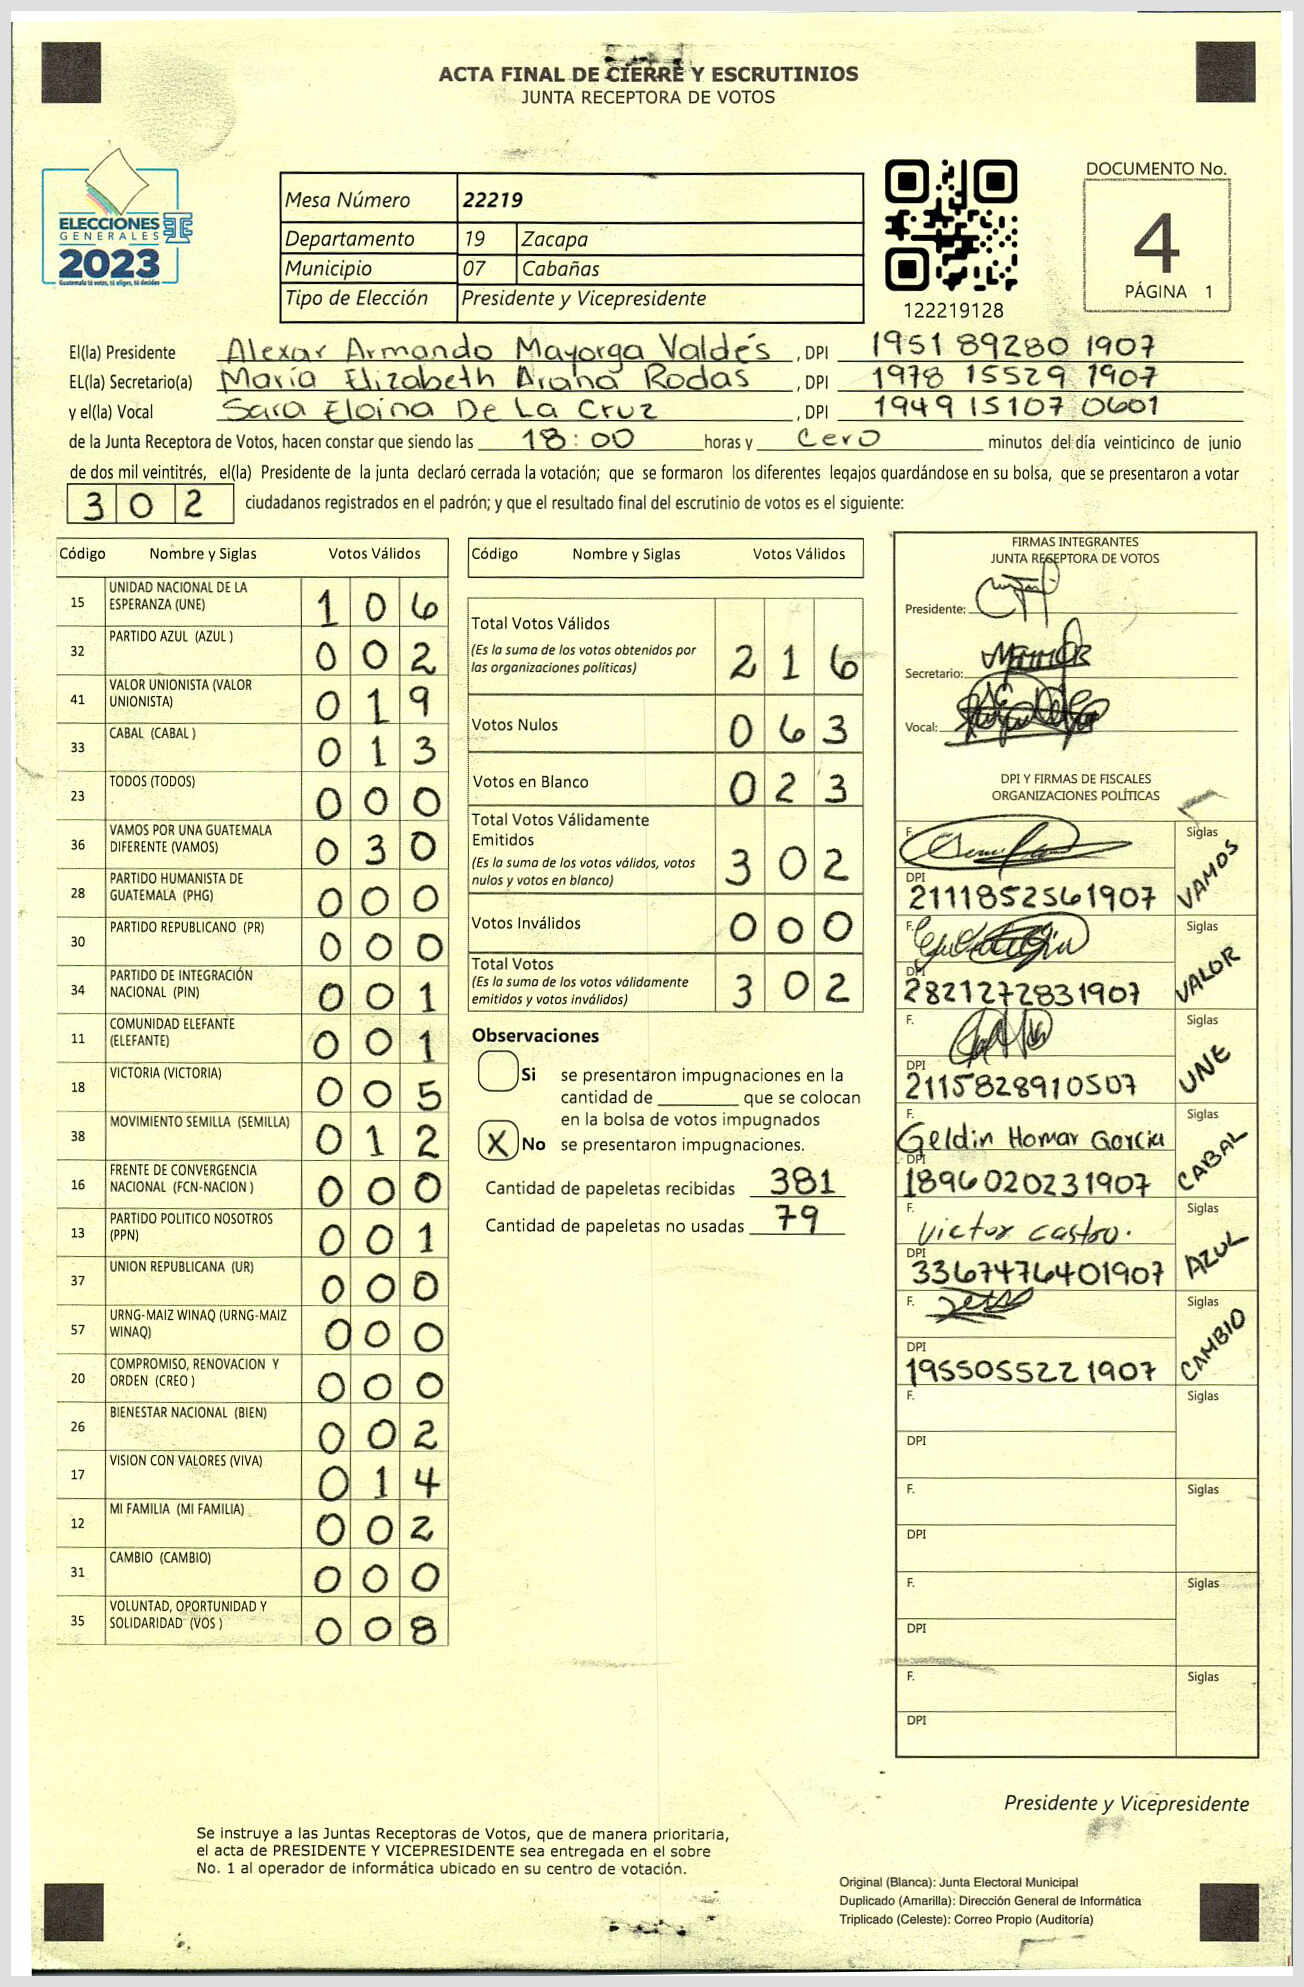 ACTA FINAL DE CIERRE Y ESCRUTINIOS
JUNTA RECEPTORA DE VOTOS
ELECCIONES
GENERALES
2023
Guatemala tú votas, tú eliges, tú decides
Mesa Número 22219
Departamento 19 Zacapa
Municipio 07 Cabañas
Tipo de Elección Presidente y Vicepresidente
122219128
DOCUMENTO No.
4
PÁGINA 1
El(la) Presidente Alexar Armando Mayorga Valdés , DPI 1951 89280 1907
EL(la) Secretario(a) María Elizabeth Arana Rodas , DPI 1978 15529 1907
y el(la) Vocal Sara Eloina De La Cruz , DPI 1949 15107 0601
de la Junta Receptora de Votos, hacen constar que siendo las 18:00 horas y cero minutos del día veinticinco de junio
de dos mil veintitrés, el(la) Presidente de la junta declaró cerrada la votación; que se formaron los diferentes legajos quardándose en su bolsa, que se presentaron a votar
302 ciudadanos registrados en el padrón; y que el resultado final del escrutinio de votos es el siguiente:
Código Nombre y Siglas Votos Válidos
15 UNIDAD NACIONAL DE LA ESPERANZA (UNE) 1 0 6
32 PARTIDO AZUL (AZUL ) 0 0 2
41 VALOR UNIONISTA (VALOR UNIONISTA) 0 1 9
33 CABAL (CABAL ) 0 1 3
23 TODOS (TODOS) 0 0 0
36 VAMOS POR UNA GUATEMALA DIFERENTE (VAMOS) 0 3 0
28 PARTIDO HUMANISTA DE GUATEMALA (PHG) 0 0 0
30 PARTIDO REPUBLICANO (PR) 0 0 0
34 PARTIDO DE INTEGRACIÓN NACIONAL (PIN) 0 0 1
11 COMUNIDAD ELEFANTE (ELEFANTE) 0 0 1
18 VICTORIA (VICTORIA) 0 0 5
38 MOVIMIENTO SEMILLA (SEMILLA) 0 1 2
16 FRENTE DE CONVERGENCIA NACIONAL (FCN-NACION ) 0 0 0
13 PARTIDO POLITICO NOSOTROS (PPN) 0 0 1
37 UNION REPUBLICANA (UR) 0 0 0
57 URNG-MAIZ WINAQ (URNG-MAIZ WINAQ) 0 0 0
20 COMPROMISO, RENOVACION Y ORDEN (CREO ) 0 0 0
26 BIENESTAR NACIONAL (BIEN) 0 0 2
17 VISION CON VALORES (VIVA) 0 1 4
12 MI FAMILIA (MI FAMILIA) 0 0 2
31 CAMBIO (CAMBIO) 0 0 0
35 VOLUNTAD, OPORTUNIDAD Y SOLIDARIDAD (VOS ) 0 0 8
Código Nombre y Siglas Votos Válidos
Total Votos Válidos 2 1 6
(Es la suma de los votos obtenidos por
las organizaciones políticas)
Votos Nulos 0 6 3
Votos en Blanco 0 2 3
Total Votos Válidamente
Emitidos 3 0 2
(Es la suma de los votos válidos, votos
nulos y votos en blanco)
Votos Inválidos 0 0 0
Total Votos 3 0 2
(Es la suma de los votos válidamente
emitidos y votos inválidos)
Observaciones
Si se presentaron impugnaciones en la
cantidad de ________ que se colocan
en la bolsa de votos impugnados
X No se presentaron impugnaciones.
Cantidad de papeletas recibidas 381
Cantidad de papeletas no usadas 79
FIRMAS INTEGRANTES
JUNTA RECEPTORA DE VOTOS
Presidente:
Secretario:
Vocal:
DPI Y FIRMAS DE FISCALES
ORGANIZACIONES POLÍTICAS
F. Siglas VAMOS
DPI 2111852561907
F. Siglas VALOR
DPI 2821272831907
F. Siglas UNE
DPI 2115828910507
F. Geldin Homar Garcia Siglas CABAL
DPI 1896020231907
F. Victor Castro. Siglas AZUL
DPI 3367476401907
F. Siglas CAMBIO
DPI 1955055221907
F. Siglas
DPI
F. Siglas
DPI
F. Siglas
DPI
F. Siglas
DPI
Presidente y Vicepresidente
Se instruye a las Juntas Receptoras de Votos, que de manera prioritaria,
el acta de PRESIDENTE Y VICEPRESIDENTE sea entregada en el sobre
No. 1 al operador de informática ubicado en su centro de votación.
Original (Blanca): Junta Electoral Municipal
Duplicado (Amarilla): Dirección General de Informática
Triplicado (Celeste): Correo Propio (Auditoría)